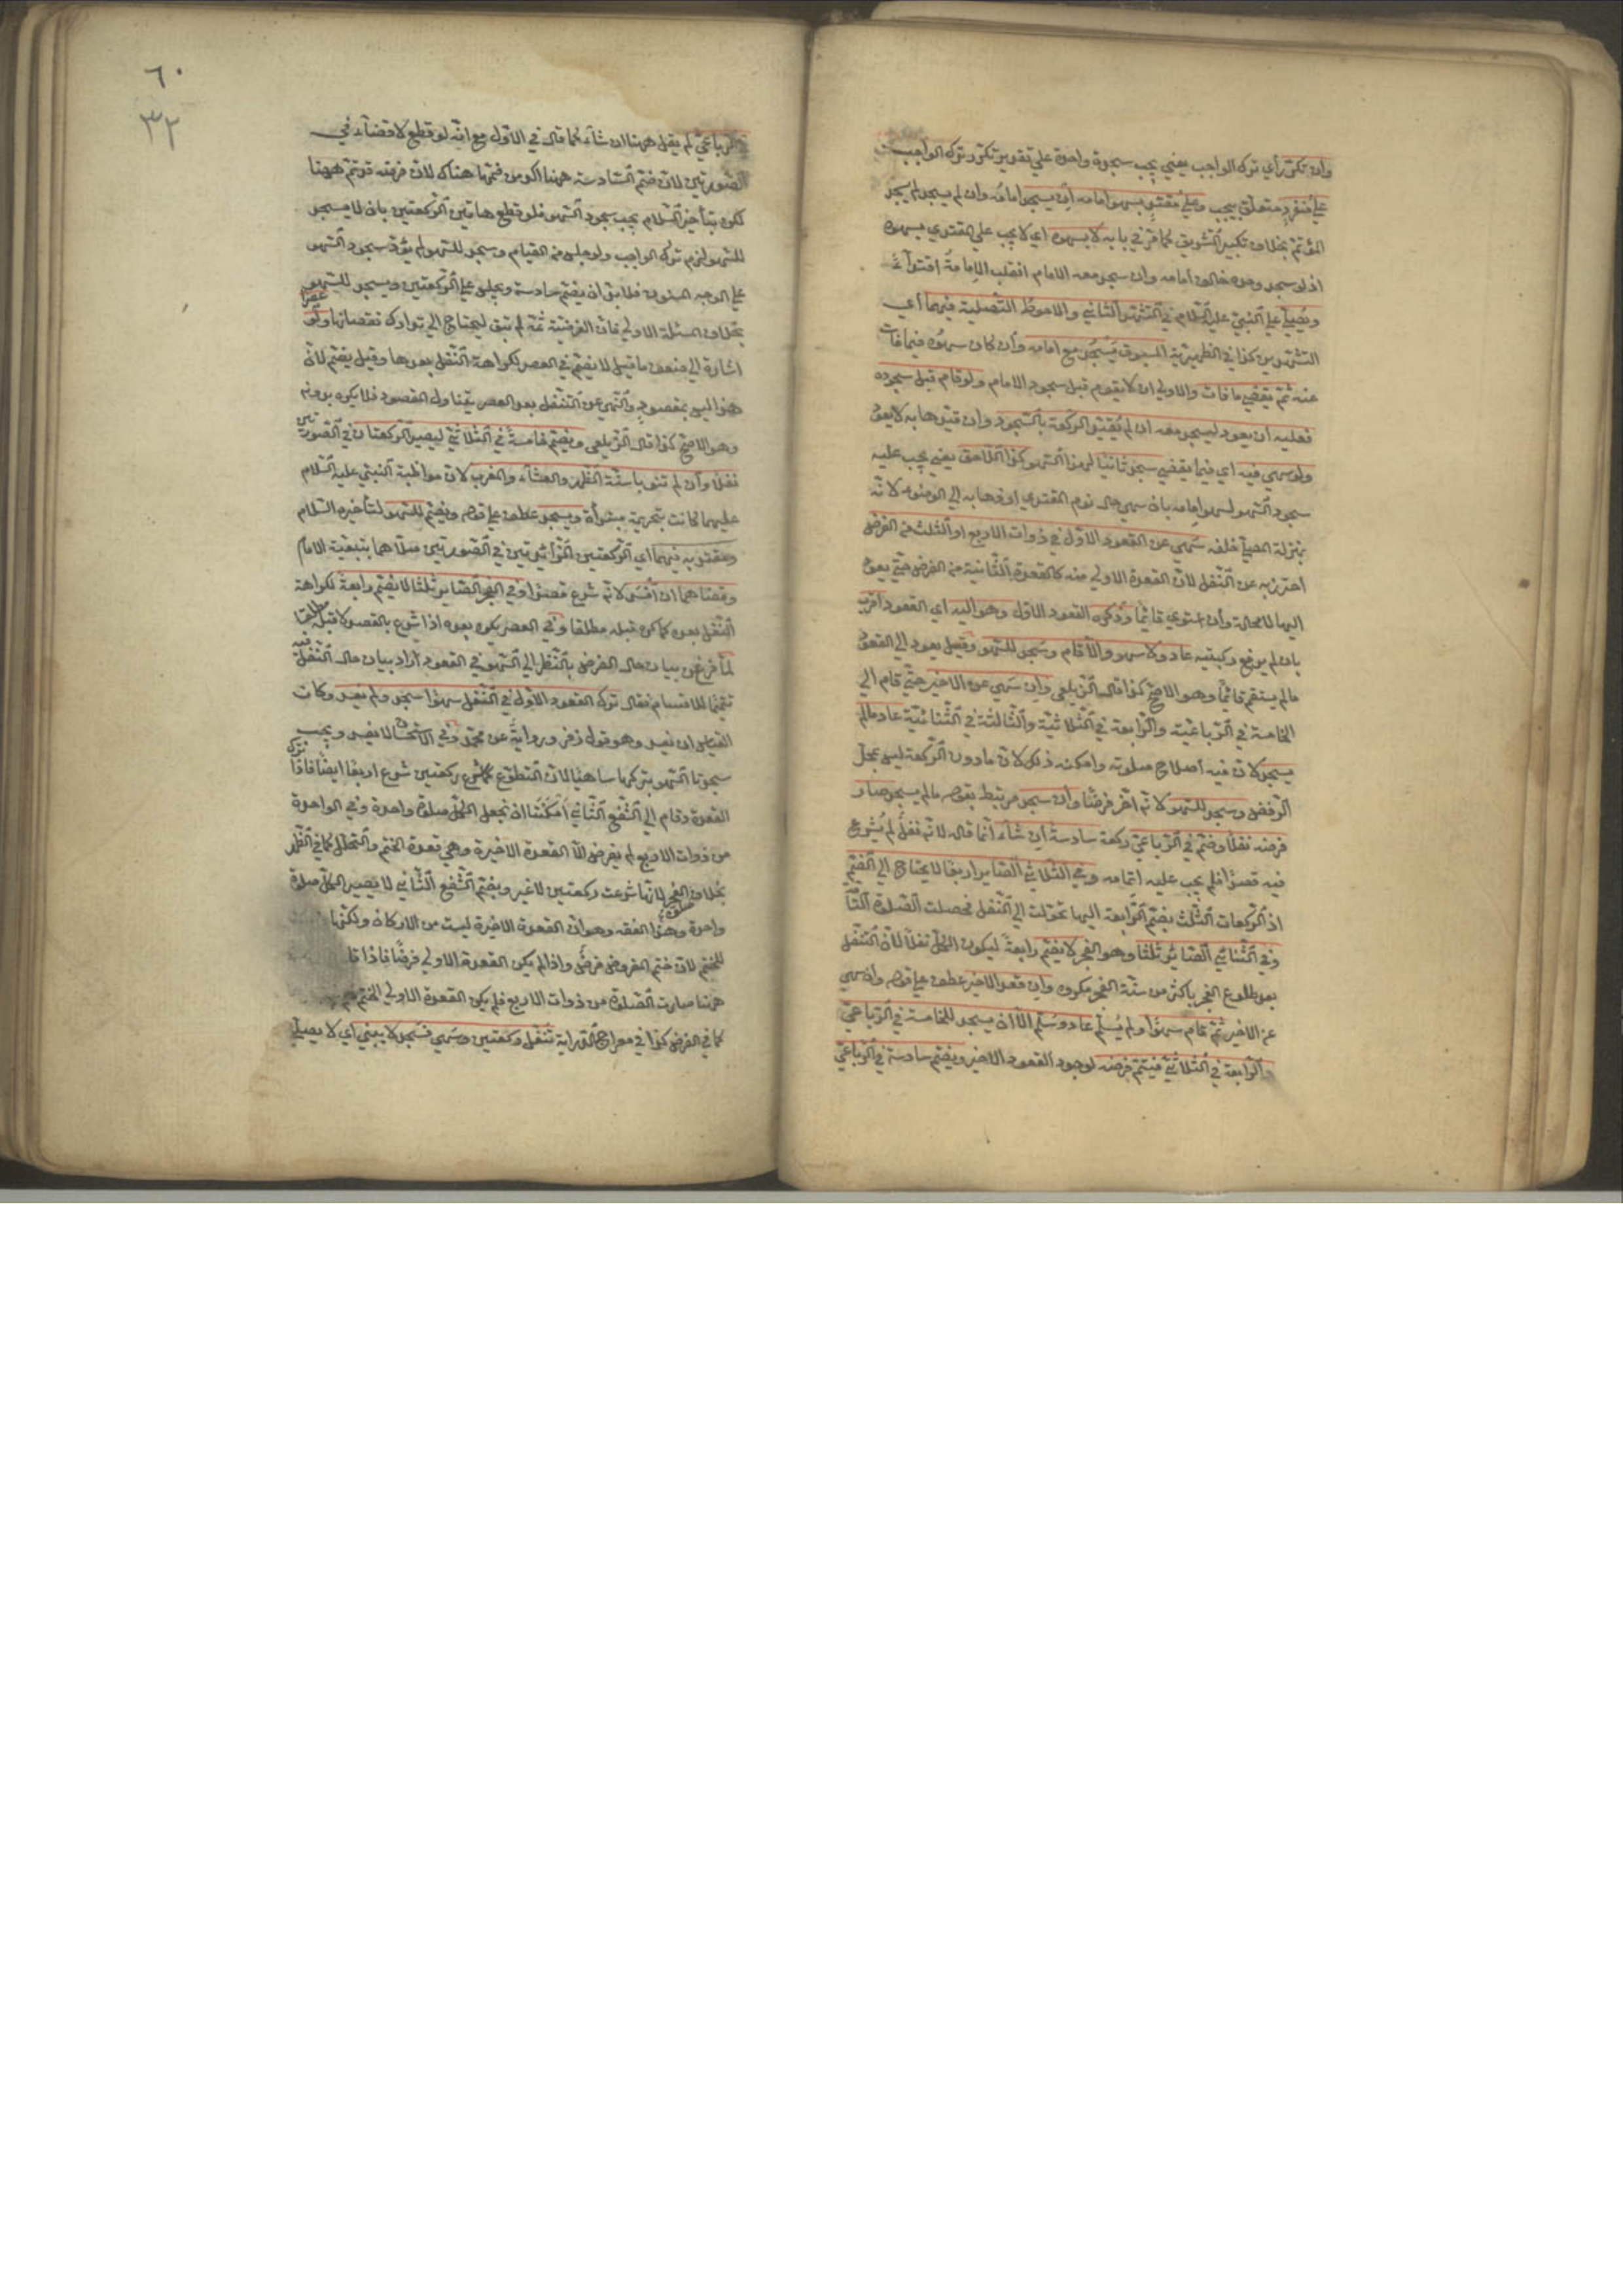 وان تكرر أي ترك الواجب يعني يجب سجدة واحدة علي تقدير تكرر ترك الواجب
علي منفرد متعلق بيجب وعلي مقتد بسهو امامه ان يسجد امامه وان لم يسجد لم يسجد
المؤتم بخلاف تكبير التشريق كما مر في بابه لا بسهوه اي لا يجب علي المقتدي بسهوه
اذ لو سجد وحده خالف امامه وان سجد معه الامام انقلب الامامة اقتداء
ويصلي علي النبي عليه السلام في التشهد الثاني والاحوط التصلية فيهما أي
التشهدين كذا في الظهيرية المسبوق يسجد مع امامه وان كان سهوه فيما فات
عنه ثم يقضي ما فات والاولي ان لا يقوم قبل سجود الامام ولو قام قبل سجوده
فعليه ان يعود ليسجد معه ان لم يقيد الركعة بالسجود وان قيدها به لا يعود
ولو سهي فيه اي فيما يقضي سجد ثانيا لهذا السهو كذا اللاحق يعني يجب عليه
سجود السهو لسهو امامه بان سهي حال نوم المقتدي او ذهابه الي الوضوء لانه
بمنزلة المصلي خلفه سهي عن القعود الاول في ذوات الاربع او الثلث من الفرض
احترز به عن النفل لان القعدة الاولي منه كالقعدة الثانية من الفرض حتي يعود
اليها لا محالة وان استوي قائما وذكره القعود الاول وهو اليه اي القعود اقرب
بان لم يرفع ركبتيه عاد ولا سهو والا قام وسجد للسهو وقيل يعود الي القعود
ما لم يستقم قائما وهو الاصح كذا قال الزيلعي وان سهي عن الاخير حتي قام الي
الخامسة في الرباعية والرابعة في الثلاثية والثالثة في الثنائية عاد ما لم
يسجد لان فيه اصلاح صلوته وامكنه ذلك لان ما دون الركعة ليس بمحل
الرفض وسجد للسهو لانه اخر فرضا وان سجد مرتبط بقوله ما لم يسجد صار
فرضه نفلا وضم في الرباعي ركعة سادسة ان شاء انما قال لانه نفل لم يشرع
فيه قصدا فلم يجب عليه اتمامه وفي الثلاثي الصائر اربعا لا يحتاج الي الضم
اذ الركعات الثلث بضم الرابعة اليها تحولت الي النفل فحصلت الصلوة التامة
وفي الثنائي الصائر ثلثا وهو الفجر لا يضم رابعة ليكون الكل نفلا لان التنفل
بعد طلوع الفجر باكثر من سنة الفجر مكروه وان قعد الاخير عطف علي قوله وان سهي
عن الاخير ثم قام سهوا ولم يسلم عاد وسلم الا ان يسجد للخامسة في الرباعي
والرابعة في الثلاثي فيتم فرضه لوجود القعود الاخير ويضم سادسة في الرباعي
٦٠
٣٢
الرباعي لم يقل ههنا ان شاء كما قال في الاول مع انه لو قطع لا قضاء في
الصورتين لان ضم السادسة ههنا اكد من ضمها هناك لان فرضه قد تم ههنا
لكن بتأخير السلام يجب سجود السهو فلو قطع هاتين الركعتين بان لا يسجد
للسهو لزم ترك الواجب ولو جلس من القيام وسجد للسهو لم يؤد سجود السهو
علي الوجه المسنون فلا بد ان يضم سادسة ويجلس علي الركعتين ويسجد للسهو
بخلاف المسئلة الاولي فان الفرضية ثمة لم تبق ليحتاج الي تدارك نقصانها ولو عصرا
اشارة الي ضعف ما قيل لا يضم في العصر لكراهة التنفل بعدها وقيل يضم لان
هذا ليس بمقصود والنهي عن التنفل بعد العصر يتناول المقصود فلا يكره بدونه
وهو الاصح كذا قال الزيلعي ويضم خامسة في الثلاثي ليصير الركعتان في الصورتين
نفلا وان لم تنوبا سنة الظهر والعشاء والمغرب لان مواظبة النبي عليه السلام
عليهما كانت بتحريمة مبتدأة ويسجد عطف علي قوله ويضم للسهو لتأخيره السلام
ومقتد به فيهما اي الركعتين الزائدتين في الصورتين صلاهما بتبعية الامام
وقضاهما ان افسد لانه شرع قصدا وفي الفجر الصائر ثلثا لا يضم رابعة لكراهة
التنفل بعده كما كره قبله مطلقا وفي العصر يكره بعده اذا شرع بالقصد لا قبله مطلقا
لما فرغ من بيان حال الفرض بالنظر الي السهو في القعود اراد بيان حال التنفل فيه
تتميما للاقسام فقال ترك القعود الاول في النفل سهوا سجد ولم يفسد وكان
القياس ان يفسد وهو قول زفر ورواية عن محمد وفي الاستحسان لا يفسد ويجب
سجدتا السهو بتركها ساهيا لان التطوع كما شرع ركعتين شرع اربعا ايضا فاذا ترك
القعدة وقام الي الشفع الثاني امكننا ان نجعل الكل صلوة واحدة وفي الواحدة
من ذوات الاربع لم يفرض الا القعدة الاخيرة وهي قعدة الختم والتحلل كما في الظهر
بخلاف الفجر لانها شرعت ركعتين لا غير وبضم الشفع الثاني لا يصير الكل صلوة
واحدة وهذا الفقه وهو ان القعدة الاخيرة ليست من الاركان ولكنها
للختم لان ختم المفروض فرض واذا لم يكن القعدة الاولي فرضا فاذا قا
ههنا صارت الصلوة من ذوات الاربع فلم يكن القعدة الاولي للختم
كما في الفرض كذا في معراج الدراية تنفل ركعتين وسهي فسجد لا يبني اي لا يصلي